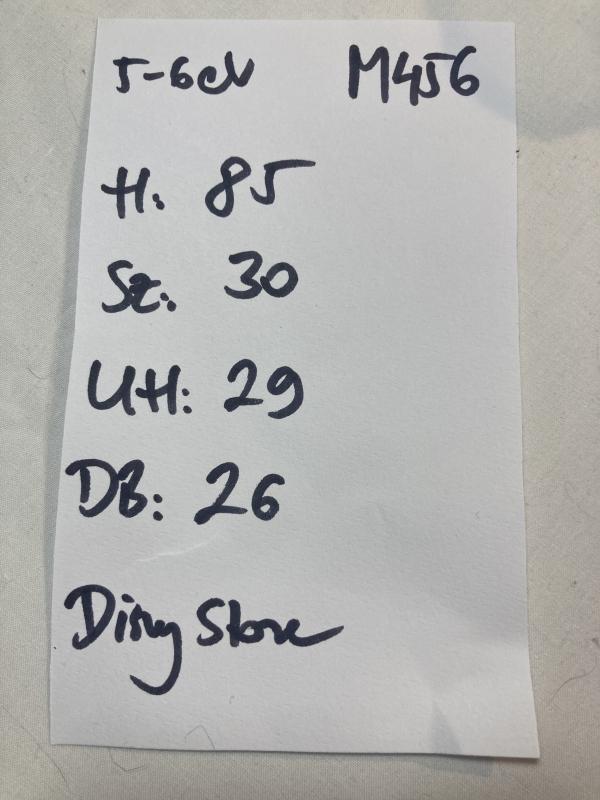 5-6év M456
H: 85
Sz: 30
UH: 29
DB: 26
Disny Store